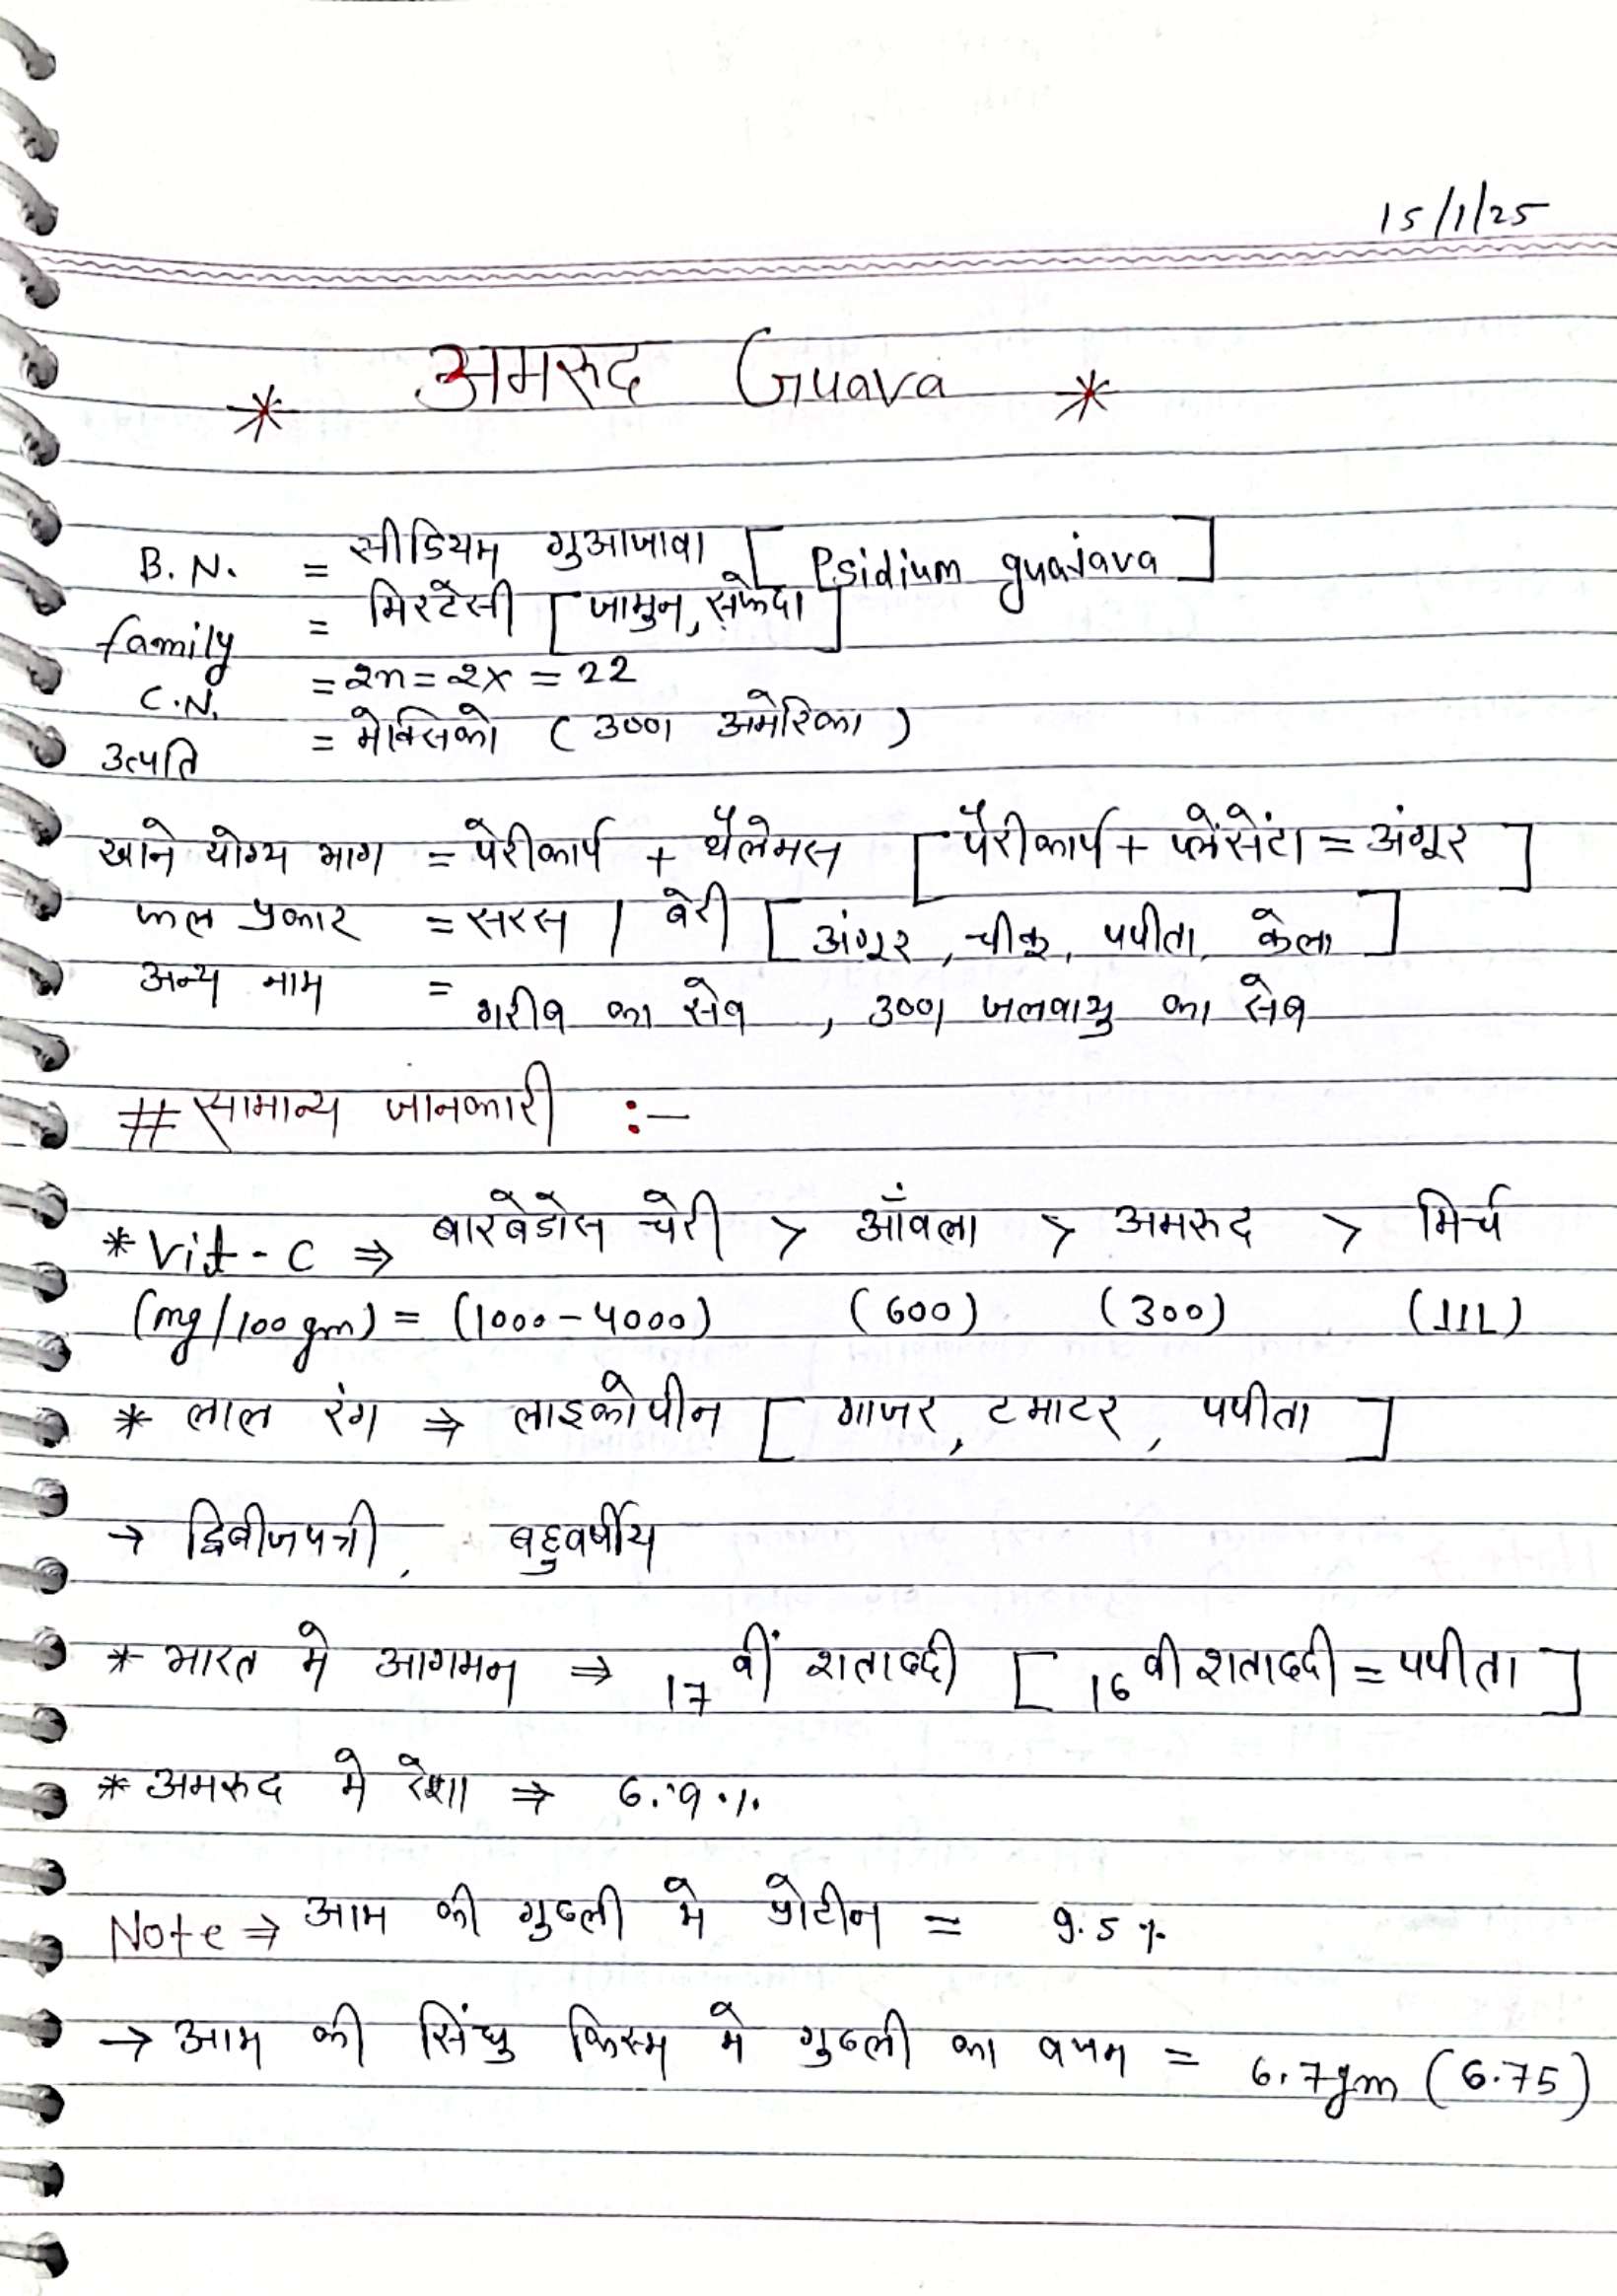 15/1/25
* अमरुद Guava *
B.N. = सीडियम गुआजावा [Psidium guajava]
family = मिरटेसी [जामुन, सफेदा]
C.N. = 2n = 2x = 22
उत्पति = मेक्सिको (उष्ण अमेरिका)
खाने योग्य भाग = पेरीकार्प + थैलेमस [पैरीकार्प + प्लेसेंटा = अंगूर]
फल प्रकार = सरस / बेरी [अंगूर, चीकू, पपीता, केला]
अन्य नाम = गरीब का सेब, उष्ण जलवायु का सेब
# सामान्य जानकारी :-
* Vit - C ⇒ बारबेडोस चेरी > आँवला > अमरुद > मिर्च
(mg/100 gm) = (1000 - 4000) (600) (300) (111)
* लाल रंग ⇒ लाइकोपीन [गाजर, टमाटर, पपीता]
→ द्विबीजपत्री, बहुवर्षीय
* भारत मे आगमन ⇒ 17 वीं शताब्दी [16 वी शताब्दी = पपीता]
* अमरुद मे रेशा ⇒ 6.9 %
Note ⇒ आम की गुठली मे प्रोटीन = 9.5 %
→ आम की सिंधु किस्म मे गुठली का वजन = 6.7 gm (6.75)